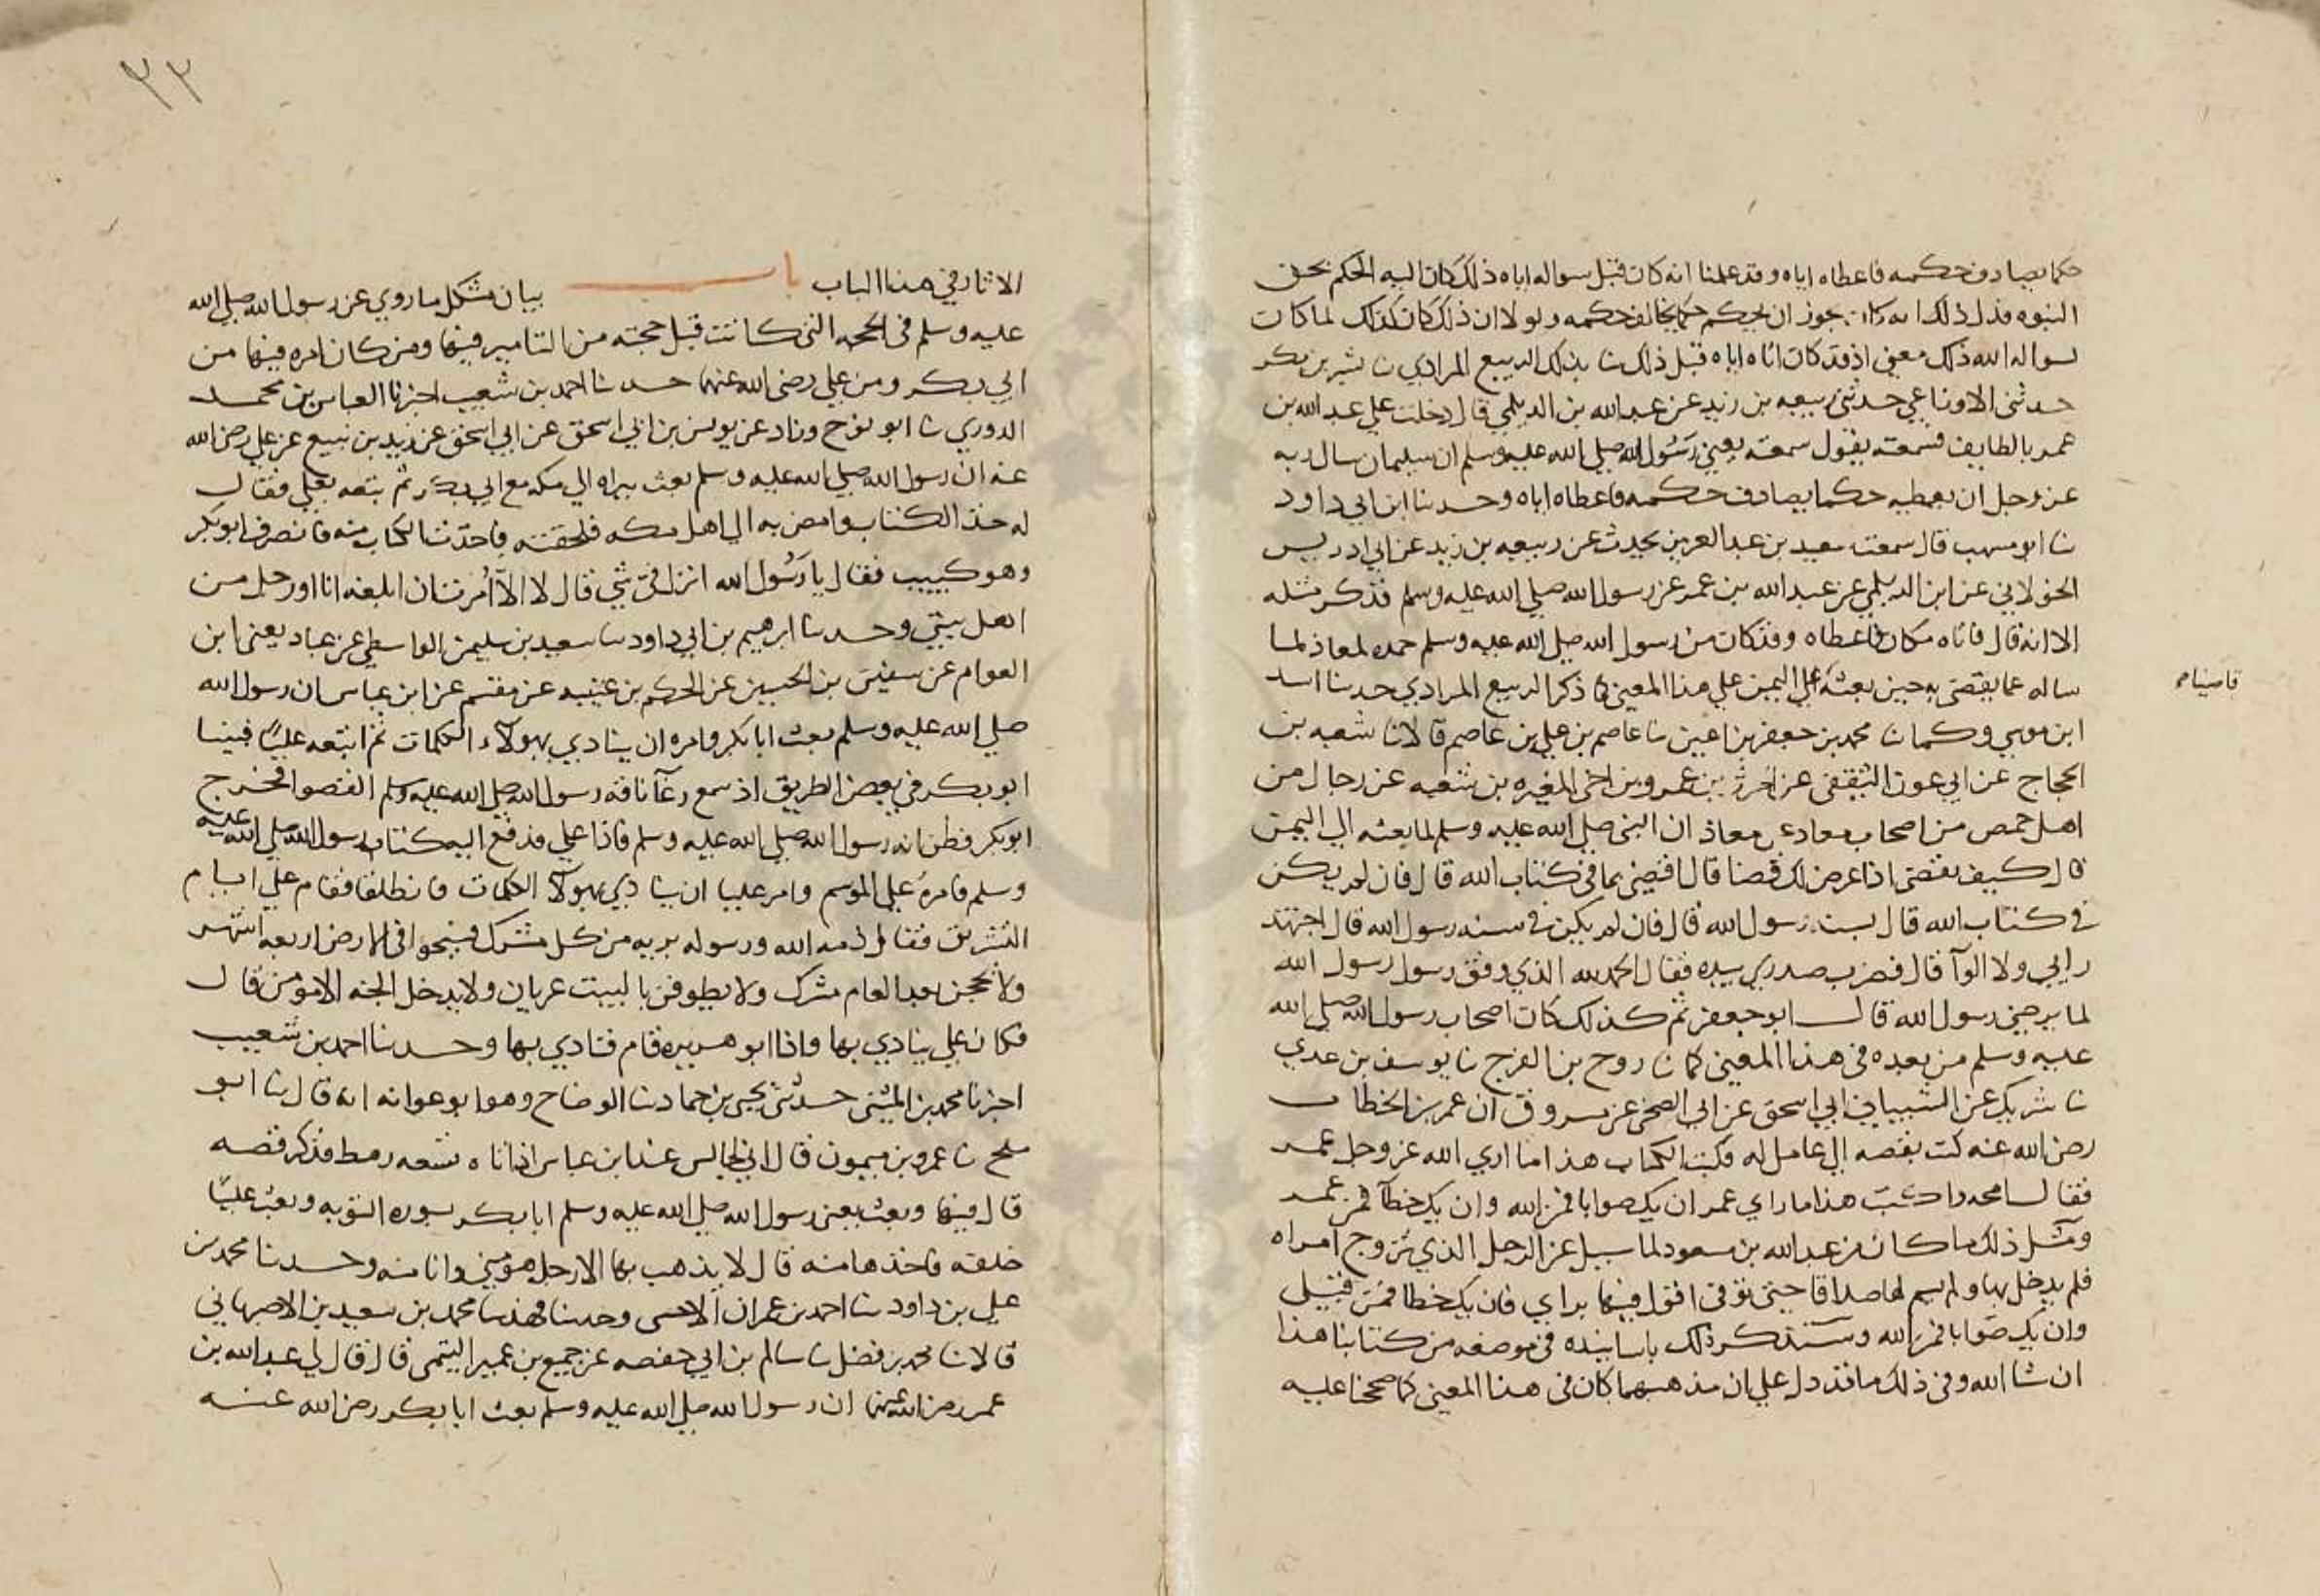 حكما يصادف حكمه فاعطاه اياه وقد علمنا انه كان قبل سواله اياه ذلك كان اليه الحكم بحق
النبوه فدل ذلك انه كان يجوز ان يحكم حكما يخالف حكمه ولولا ان ذلك كان كذلك لما كان
لسواله الله ذلك معنى اذ قد كان اتاه اياه قبل ذلك نا بذلك الربيع المرادي نا بشر بن بكر
حدثنى الاوزاعي حدثنى ربيعه بن زيد عن عبد الله بن الديلمي قال دخلت علي عبد الله بن
عمر بالطايف فسمعته يقول سمعته يعنى رسول الله صلى الله عليه وسلم ان سليمان سال ربه
عز وجل ان يعطيه حكما يصادف حكمه فاعطاه اياه وحدثنا ابن ابي داود
نا ابو مسهر قال سمعت سعيد بن عبد العزيز يحدث عن ربيعه بن زيد عن ابي ادريس
الخولاني عن ابن الديلمي عن عبد الله بن عمر عن رسول الله صلي الله عليه وسلم فذكر مثله
الا انه قال فاتاه مكان فاعطاه وقد كان من رسول الله صلي الله عليه وسلم حمده لمعاذ لما
ساله عما يقضى به حين بعثه علي اليمن علي هذا المعنى كما ذكر الربيع المرادي حدثنا اسد
قاضيا صح
ابن موسي وكما نا محمد بن جعفر بن اعين نا عاصم بن علي بن عاصم قالا نا شعبه بن
الحجاج عن ابي عون الثقفى عن الحرث بن عمرو بن اخى المغيره بن شعبه عن رجال من
اهل حمص من اصحاب معاد عن معاذ ان النبي صلي الله عليه وسلم لما بعثه الي اليمن
قال كيف تقضى اذا عرض لك قضا قال اقضي بما في كتاب الله قال فان لم يكن
في كتاب الله قال بسنه رسول الله قال فان لم يكن في سنه رسول الله قال اجتهد
رايي ولا الوا قال فضرب صدري بيده فقال الحمد لله الذي وفق رسول رسول الله
لما يرضي رسول الله قال ابو جعفر ثم كذلك كان اصحاب رسول الله صلي الله
عليه وسلم من بعده في هذا المعنى كما نا روح بن الفرج نا يوسف بن عدي
نا شريك عن الشيباني ابي اسحق عن ابي الضحى عن مسروق ان عمر بن الخطاب
رضى الله عنه كتب بقصه الي عامل له فكتب الكتاب هذا ما اري الله عز وجل عمر
فقال امحه واكتب هذا ما راي عمر ان يك صوابا فمن الله وان يك خطا فمن عمر
ومثل ذلك ما كان من عبد الله بن مسعود لما سيل عن الرجل الذي تزوج امراه
فلم يدخل بها ولم يسم لها صداقا حتى توفى اقول فيها براي فان يك خطا فمن قبلي
وان يك صوابا فمن الله وسنذكر ذلك باسانيده في موضعه من كتابنا هذا
ان شا الله وفي ذلك ما قد دل علي ان مذهبهما كان في هذا المعنى كما صححنا عليه
٣٣
الاثار في هذا الباب باب بيان مشكل ما روي عن رسول الله صلي الله
عليه وسلم في الحجه التى كانت قبل حجته من التامير فيها ومن كان امره فيها من
ابي بكر ومن علي رضى الله عنهما حدثنا احمد بن شعيب اخبرنا العباس بن محمد
الدوري نا ابو نوح وزاد عن يونس بن ابي اسحق عن ابي اسحق عن زيد بن يثيع عن علي رضى الله
عنه ان رسول الله صلي الله عليه وسلم بعث ببراه الي مكه مع ابي بكر ثم بتعه بعلي فقال
له خذ الكتاب وامض به الي اهل مكه فلحقته فاخذت الكتاب منه فانصرف ابو بكر
وهو كييب فقال يا رسول الله انزل في شي قال لا الا اني امرت ان ابلغه انا او رجل من
اهل بيتي وحدثنا ابرهيم بن ابي داود نا سعيد بن سليمن الواسطي عن عباد يعنى ابن
العوام عن سفين بن الحسين عن الحكم بن عتيبه عن مقسم عن ابن عباس ان رسول الله
صلي الله عليه وسلم بعث ابا بكر وامره ان ينادي بهولاء الكلمات ثم اتبعه عليا فبينا
ابو بكر في بعض الطريق اذ سمع رغا ناقه رسول الله صلي الله عليه وسلم القصوا فخرج
ابو بكر فظن انه رسول الله صلي الله عليه وسلم فاذا علي فدفع اليه كتاب رسول الله صلي الله عليه
وسلم فامره علي الموسم وامر عليا ان ينادي بهولا الكلمات فانطلقا فقام علي ايام
التشريق فقال ذمه الله ورسوله بريه من كل مشرك فسيحوا في الارض اربعه اشهر
ولا يحجن بعد العام مشرك ولا يطوفن بالبيت عريان ولا يدخل الجنه الا مومن قال
فكان علي ينادي بها فاذا ابو هريره قام فنادي بها وحدثنا احمد بن شعيب
اخبرنا محمد بن المثنى حدثنى يحيى بن حماد نا الوضاح وهو ابو عوانه انه قال نا ابو
بلج نا عمرو بن ميمون قال اني لجالس عند ابن عباس اذ اتاه تسعه رهط فذكر قصه
قال فيها وبعث يعنى رسول الله صلي الله عليه وسلم ابا بكر بسوره التوبه وبعث عليا
خلفه فاخذها منه قال لا يذهب بها الا رجل هو منى وانا منه وحدثنا محمد بن
علي بن داود نا احمد بن عمران الاخنسى وحدثنا فهد نا محمد بن سعيد بن الاصبهاني
قالا نا محمد بن فضل نا سالم بن ابي حفصه عن جميع بن عمير التيمى قال قال لي عبد الله بن
عمر رضى الله عنهما ان رسول الله صلي الله عليه وسلم بعث ابا بكر رضى الله عنه